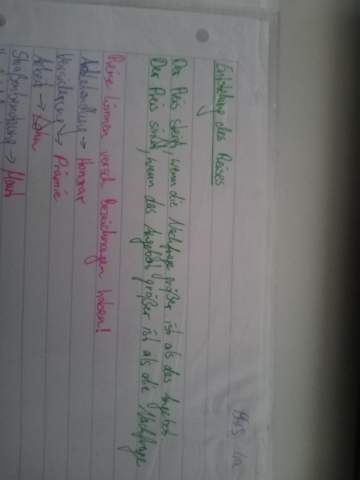 Entstehung des Preises
Der Preis steigt, wenn die Nachfrage größer ist als das Angebot
Der Preis sinkt, wenn das Angebot größer ist als die Nachfrage
Preise können versch. Bezeichnungen haben!
→ Honorar
Versicherung → Prämie
Arbeit → Lohn
Straßenbenutzung → Maut